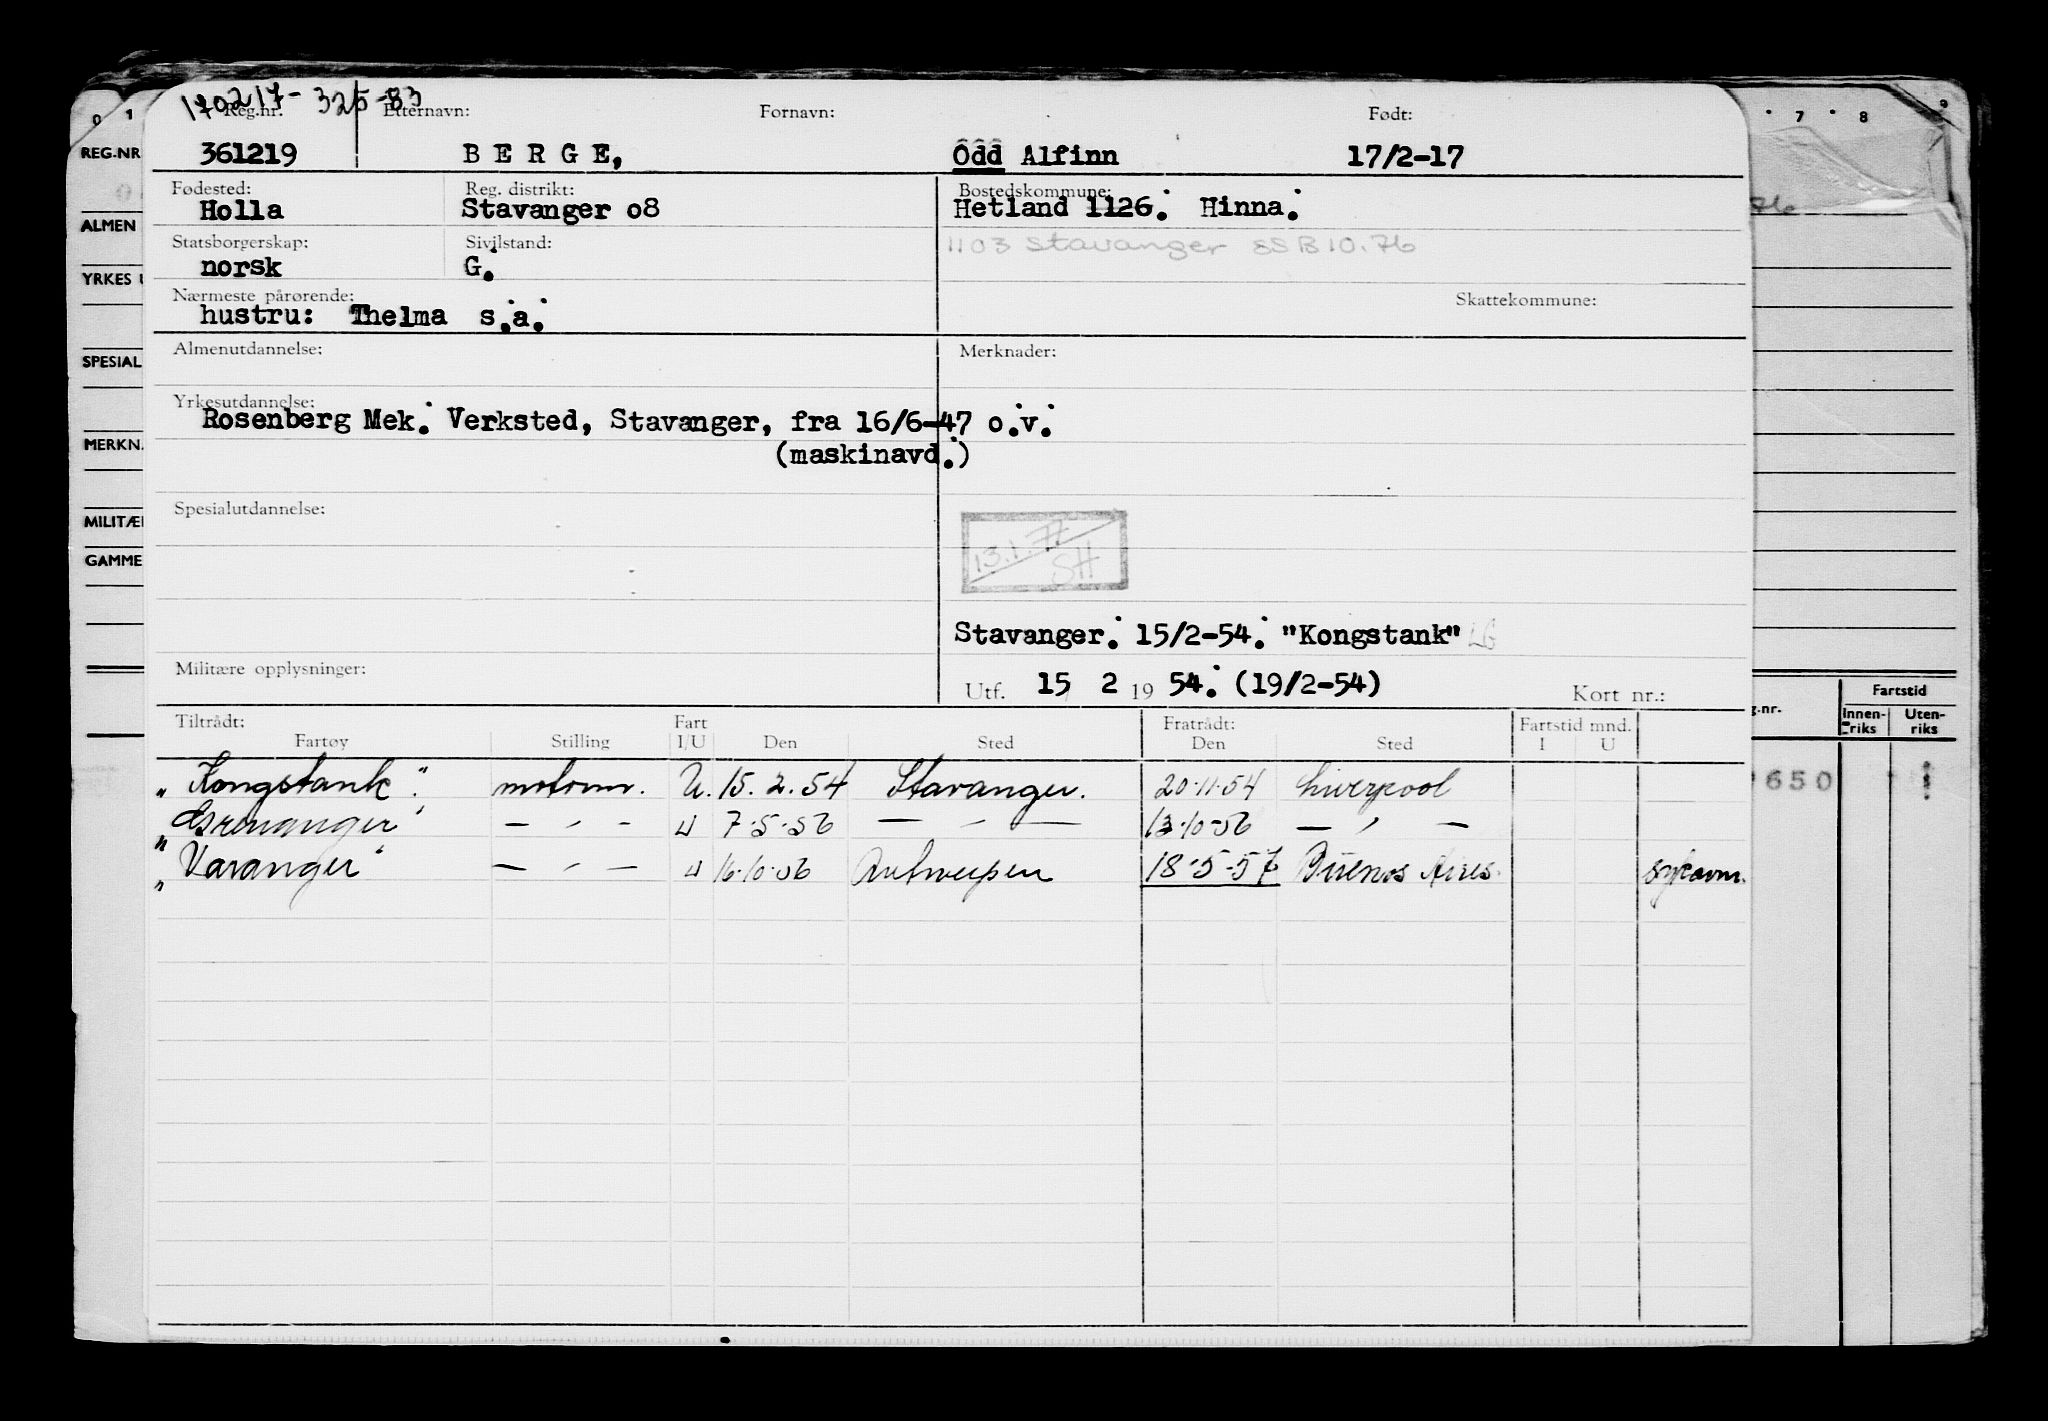 170217-325-83
Reg.nr. Etternavn: Fornavn: Født:
361219 BERGE, Odd Alfinn 17/2-17
Fødested: Reg. distrikt: Bostedskommune:
Holla Stavanger o8 Hetland 1126. Hinna.
Statsborgerskap: Sivilstand: 1103 Stavanger SSB 10.76
norsk G.
Nærmeste pårørende: Skattekommune:
hustru: Thelma s.a.
Almenutdannelse: Merknader:
Yrkesutdannelse:
Rosenberg Mek. Verksted, Stavanger, fra 16/6-47 o.v.
(maskinavd.)
Spesialutdannelse:
13.1.77
SH
Stavanger. 15/2-54. "Kongstank" LG
Militære opplysninger:
Utf. 15 2 1954. (19/2-54) Kort nr.:
Tiltrådt: Fart Fratrådt: Fartstid mnd.
Fartøy Stilling I/U Den Sted Den Sted I U
"Kongstank". motorm. U. 15.2.54 Stavanger. 20.11.54 Liverpool
" — " — U 7-5-56 — " — 13-10-56 — " —
"Varanger" — " — U 16.10.56 Antwerpen 18-5-57 Buenos Aires. sykavm.
0 1 7 8 9
REG.NR
ALMEN
YRKES U
SPESIAL
MERKN.
MILITÆ
GAMME
76
g.nr. Fartstid
Innen-riks Uten-riks
650